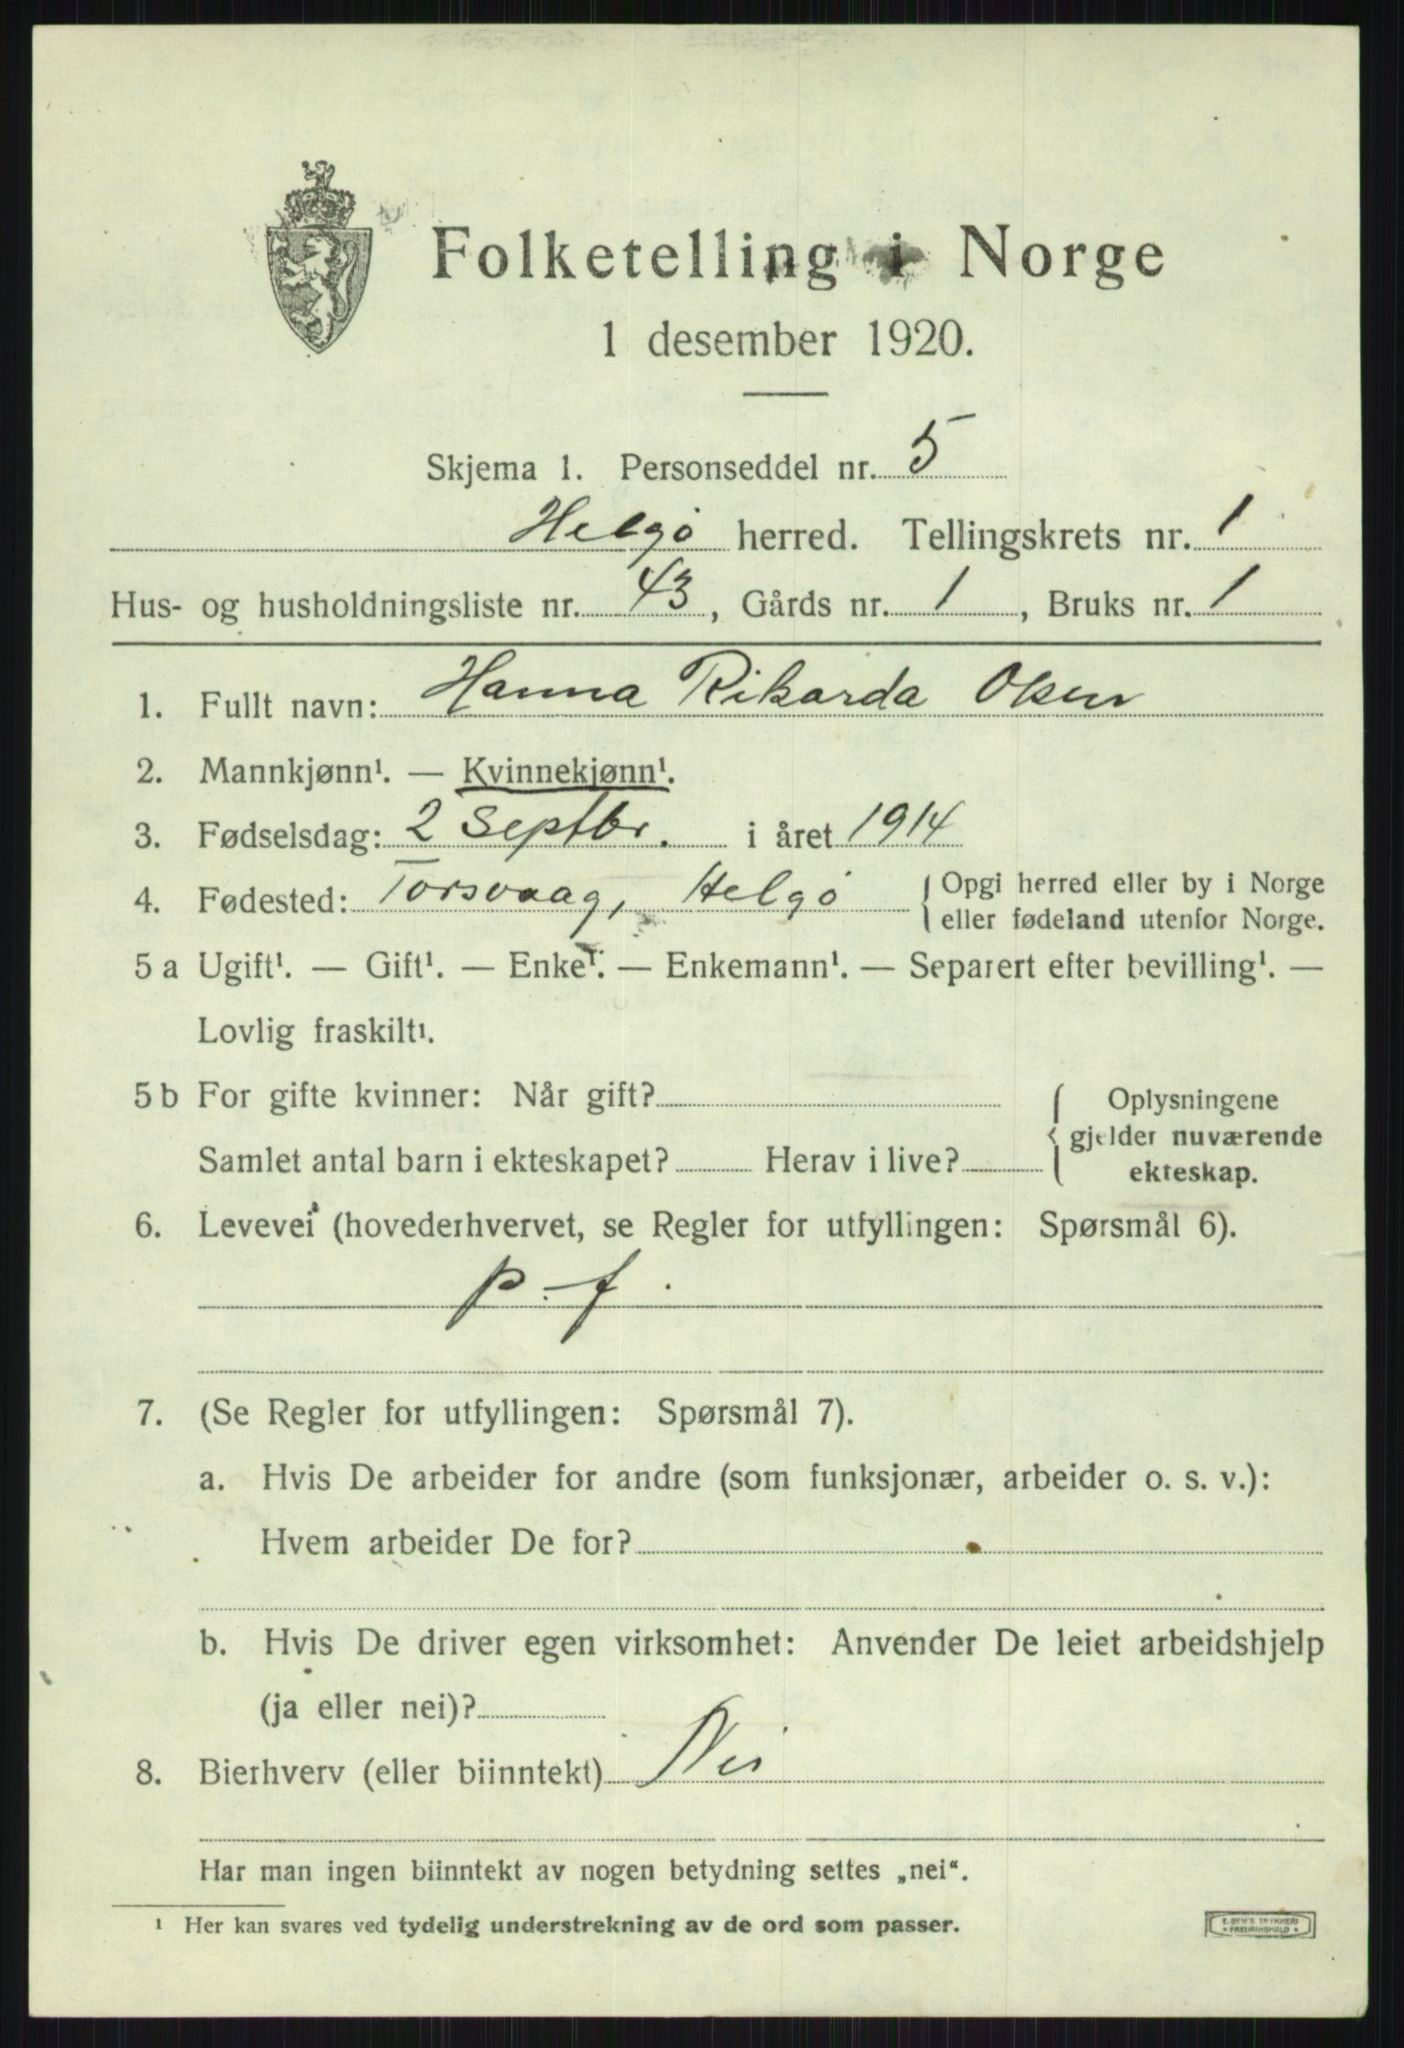 Folketelling i Norge
1 desember 1920.
Skjema 1. Personseddel nr. 5
Helgø herred. Tellingskrets nr. 1
Hus- og husholdningsliste nr. 43, Gårds nr. 1, Bruks nr. 1
1. Fullt navn: Hanna Rikarda Olsen
2. Mannkjønn¹. — Kvinnekjønn¹.
3. Fødselsdag: 2 Septbr. i året 1914
4. Fødested: Torsvaag, Helgø { Opgi herred eller by i Norge
eller fødeland utenfor Norge.
5 a Ugift¹. — Gift¹. — Enke¹. — Enkemann¹. — Separert efter bevilling¹. —
Lovlig fraskilt¹.
5 b For gifte kvinner: Når gift?
Samlet antal barn i ekteskapet? Herav i live?
{ Oplysningene
gjelder nuværende
ekteskap.
6. Levevei (hovederhvervet, se Regler for utfyllingen: Spørsmål 6).
p. f.
7. (Se Regler for utfyllingen: Spørsmål 7).
a. Hvis De arbeider for andre (som funksjonær, arbeider o. s. v.):
Hvem arbeider De for?
b. Hvis De driver egen virksomhet: Anvender De leiet arbeidshjelp
(ja eller nei)?
8. Bierhverv (eller biinntekt) Nei
Har man ingen biinntekt av nogen betydning settes „nei“.
¹ Her kan svares ved tydelig understrekning av de ord som passer.
E. SEM'S TRYKKERI
FREDRIKSHALD